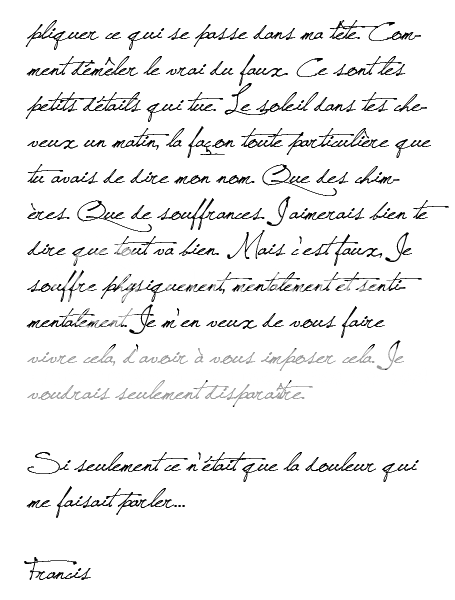 pliquer ce qui se passe dans ma tête. Com-
ment démêler le vrai du faux. Ce sont les
petits détails qui tue. Le soleil dans tes che-
veux un matin, la façon toute particulière que
tu avais de dire mon nom. Que des chim-
ères. Que de souffrances. J'aimerais bien te
dire que tout va bien. Mais c'est faux. Je
souffre physiquement, mentalement et senti-
mentalement. Je m'en veux de vous faire
vivre cela, d'avoir à vous imposer cela. Je
voudrais seulement disparaître.
Si seulement ce n'était que la douleur qui
me faisait parler...
Francis